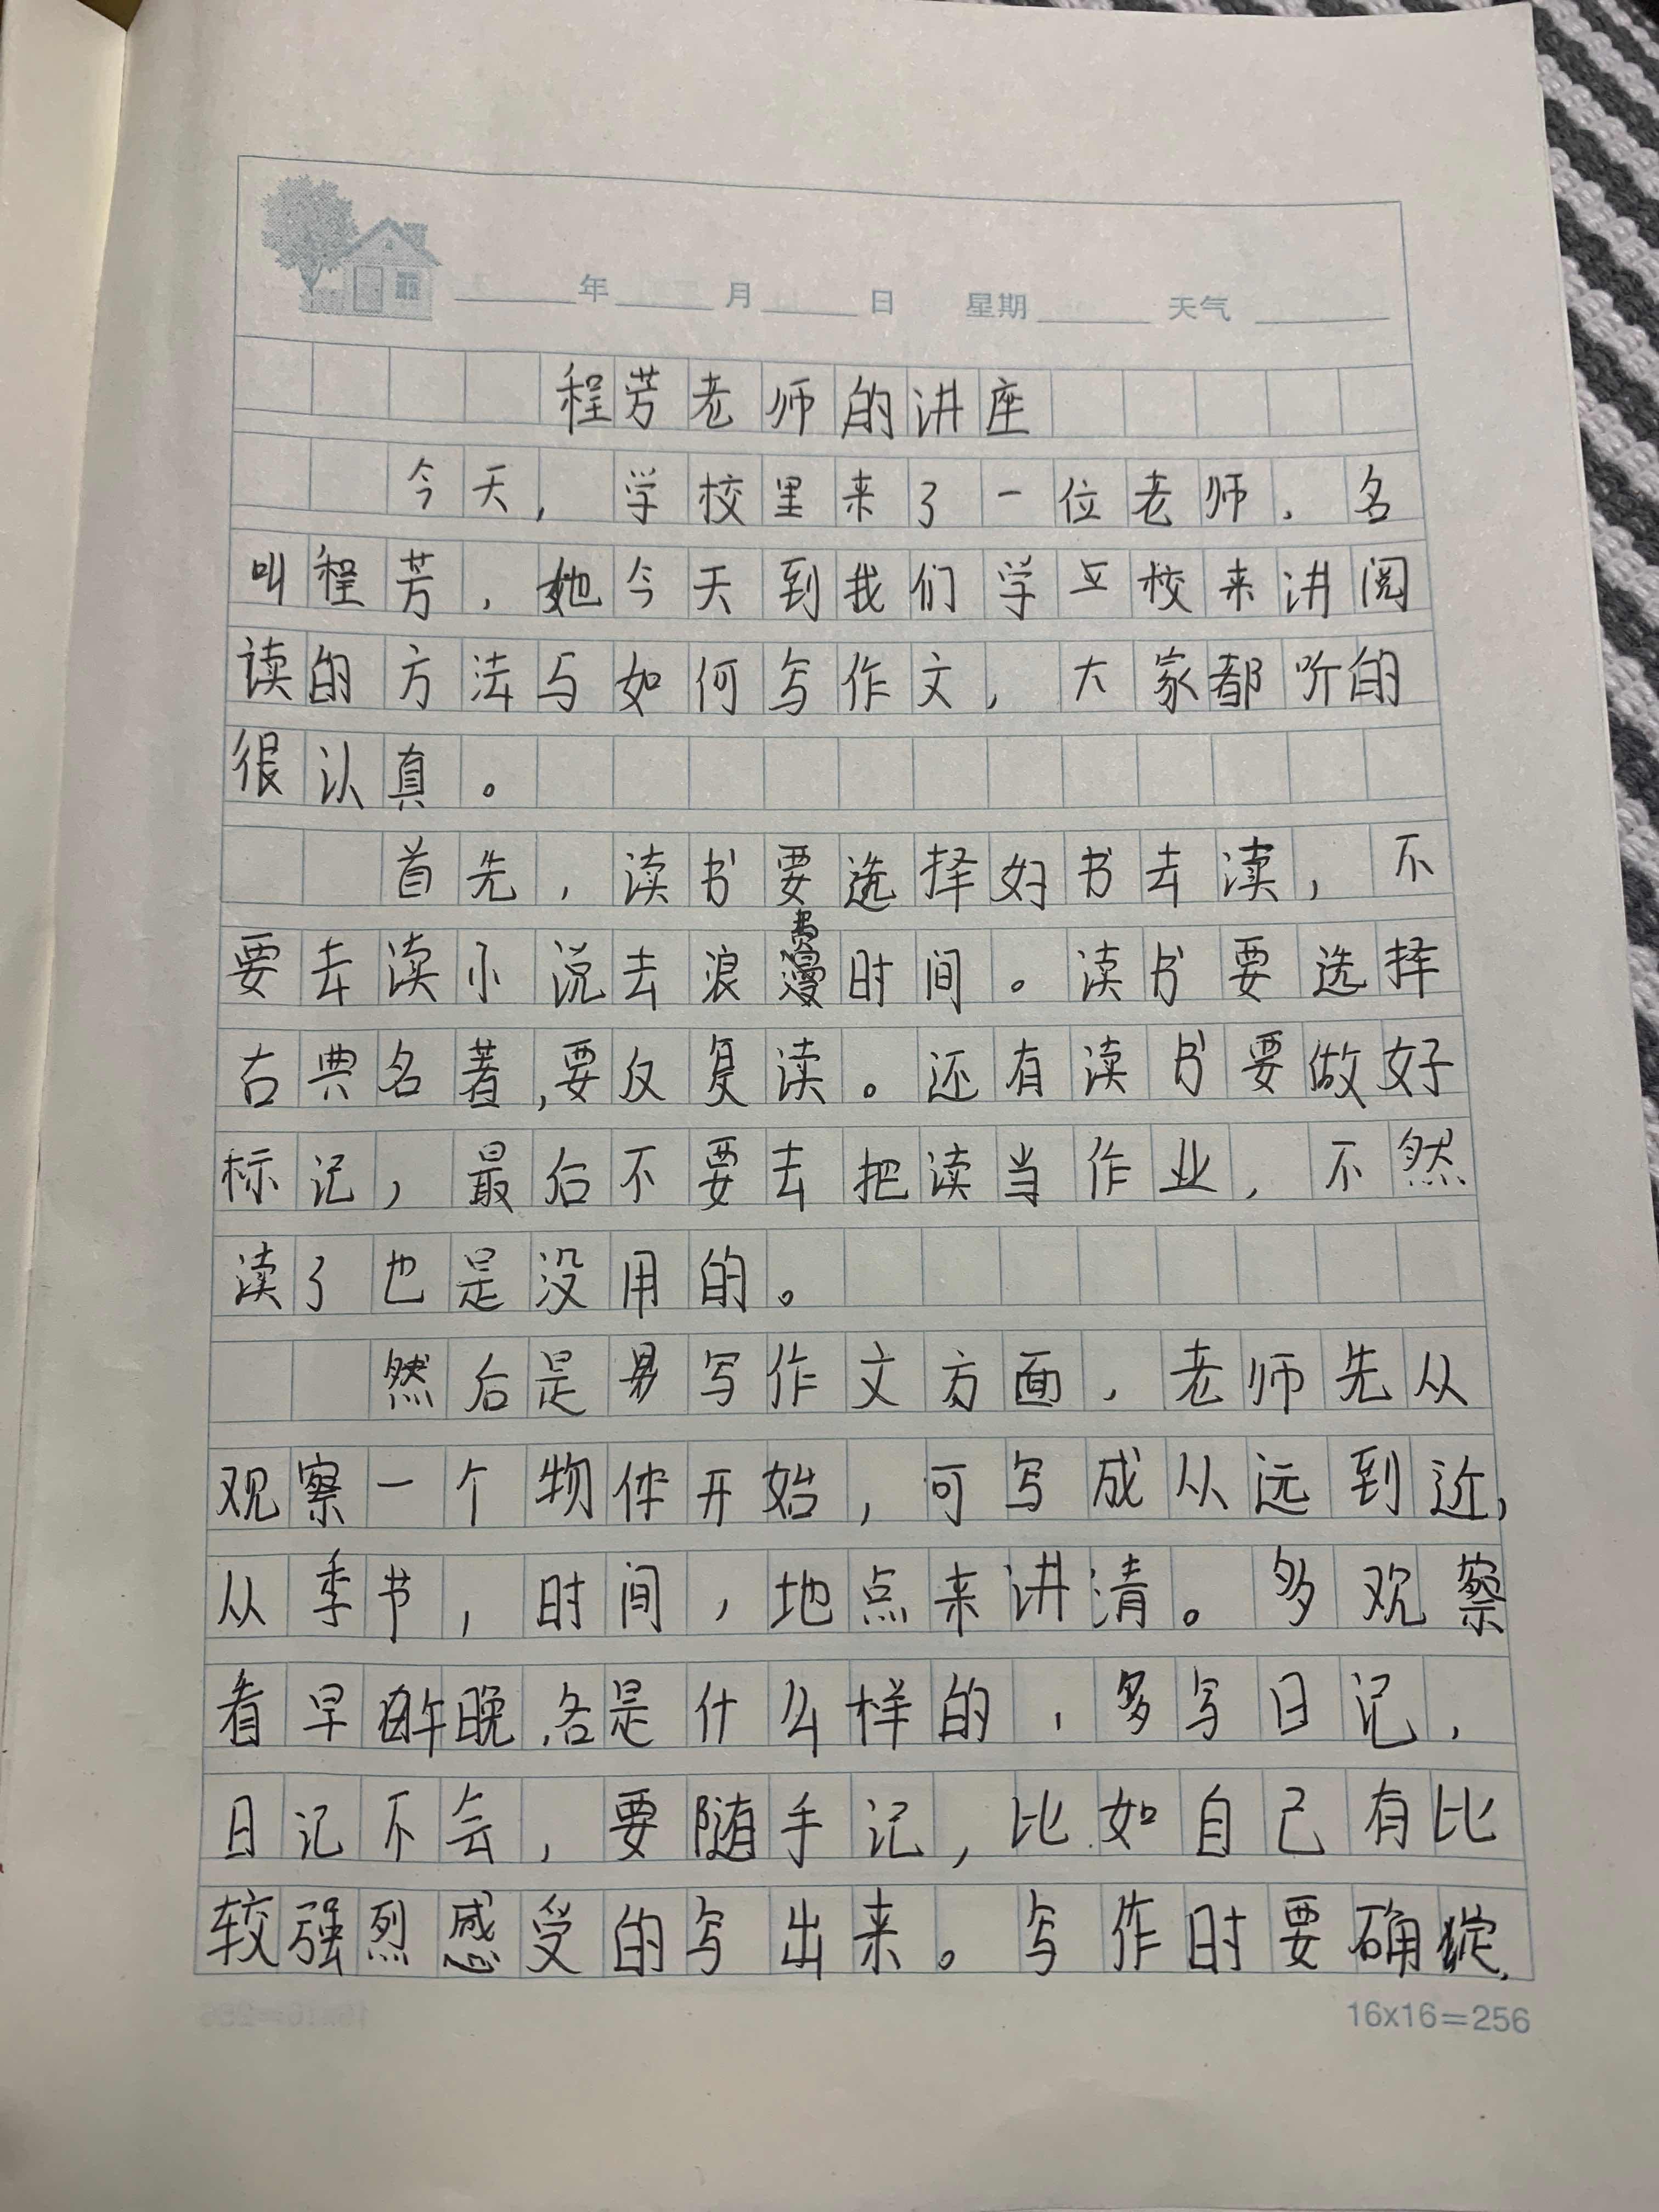 年 月 日 星期 天气
程芳老师的讲座
今天，学校里来了一位老师，名
叫程芳，她今天到我们学校来讲阅
读的方法与如何写作文，大家都听的
很认真。
首先，读书要选择好书去读，不
要去读小说去浪费时间。读书要选择
古典名著，要反复读。还有读书要做好
标记，最后不要去把读当作业，不然
读了也是没用的。
然后是写作文方面，老师先从
观察一个物体开始，可写成从远到近，
从季节，时间，地点来讲清。多观察
看早午晚，各是什么样的，多写日记，
日记不会，要随手记，比如自己有比
较强烈感受的写出来。写作时要确定，
16x16=256